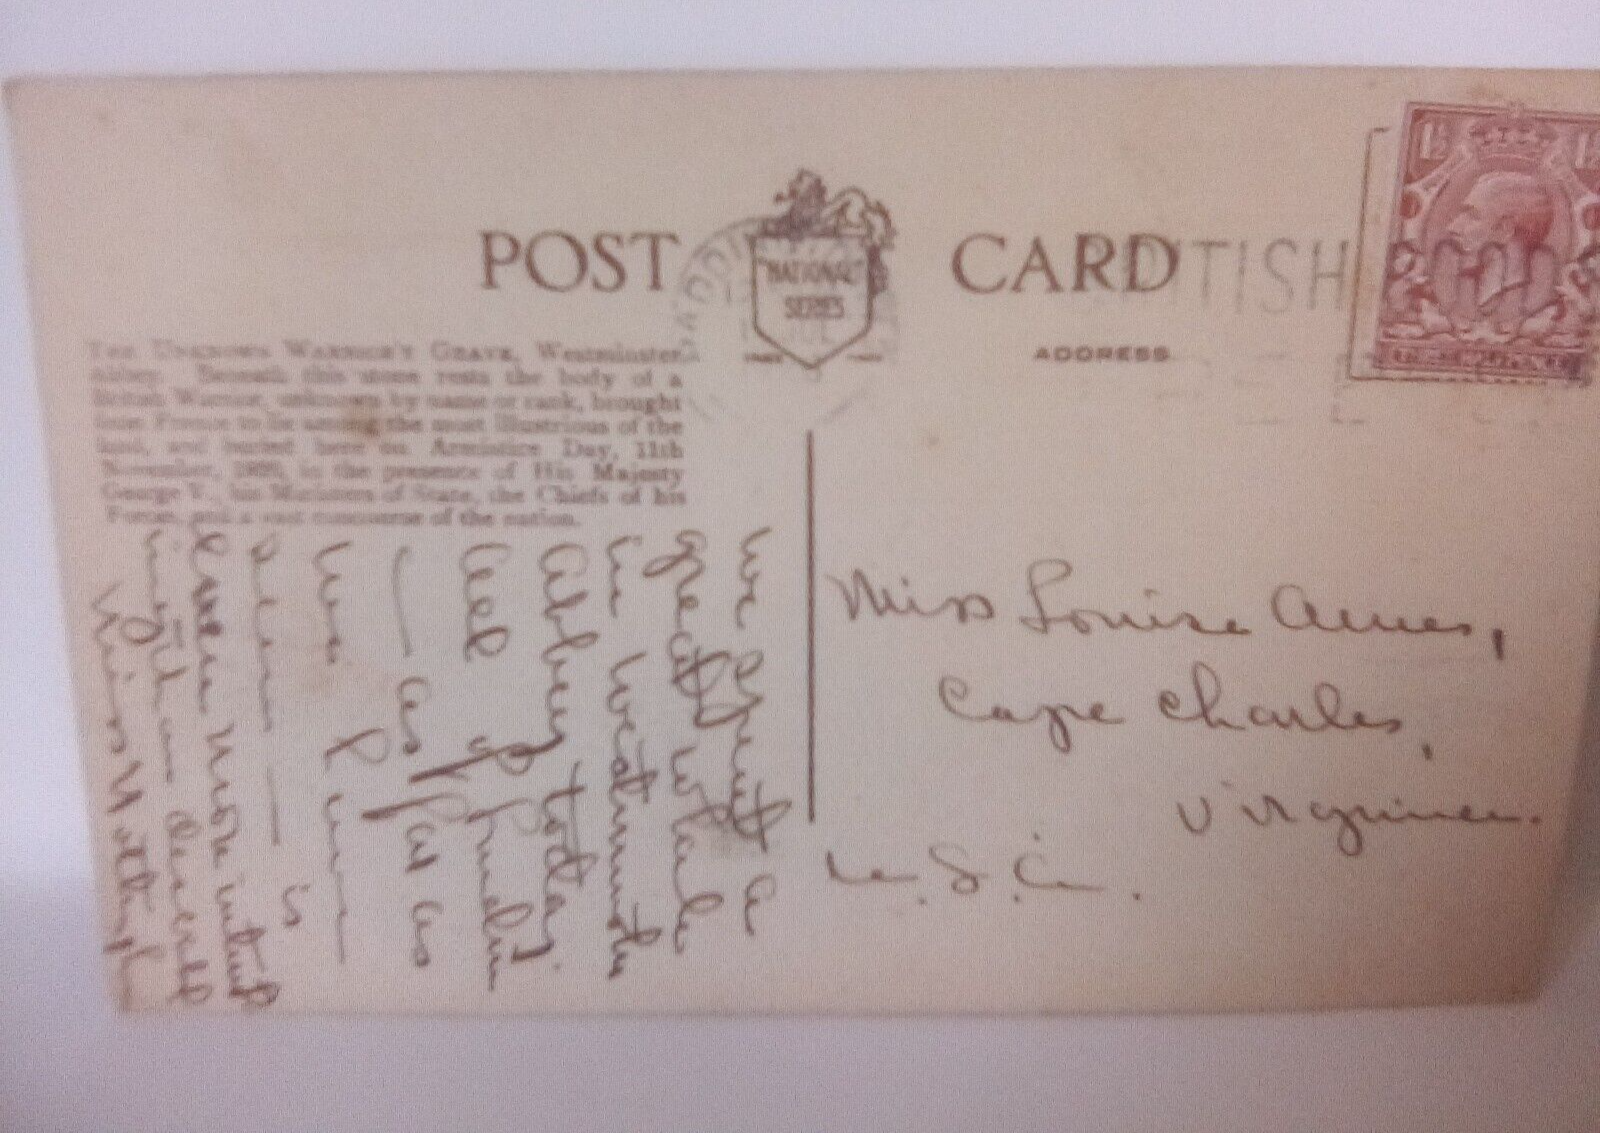 POST CARD
NATIONAL
SERIES
ADDRESS
BRITISH
GOOD
1½ 1½
THE UNKNOWN WARRIOR'S GRAVE, Westminster
Abbey. Beneath this stone rests the body of a
British Warrior, unknown by name or rank, brought
from France to lie among the most illustrious of the
land, and buried here on Armistice Day, 11th
November, 1920, in the presence of His Majesty
George V., his Ministers of State, the Chiefs of his
Forces, and a vast concourse of the nation.
We spent a
great while
in Westminster
Abbey today.
All of
— as far as
is
more
Miss
Miss Louise Ames,
Cape Charles,
Virginia.
U.S.A.